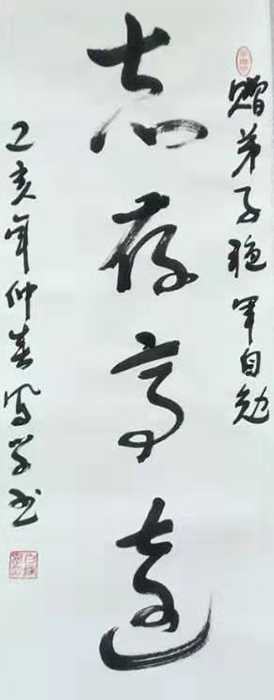 赠弟子军自勉
志存高远
己亥年仲春凤学书